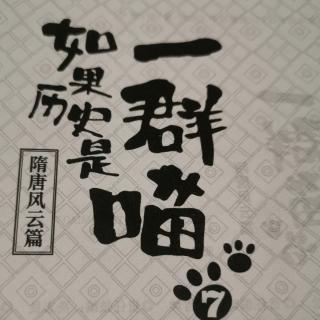 如果历史是
一群喵
隋唐风云篇
7